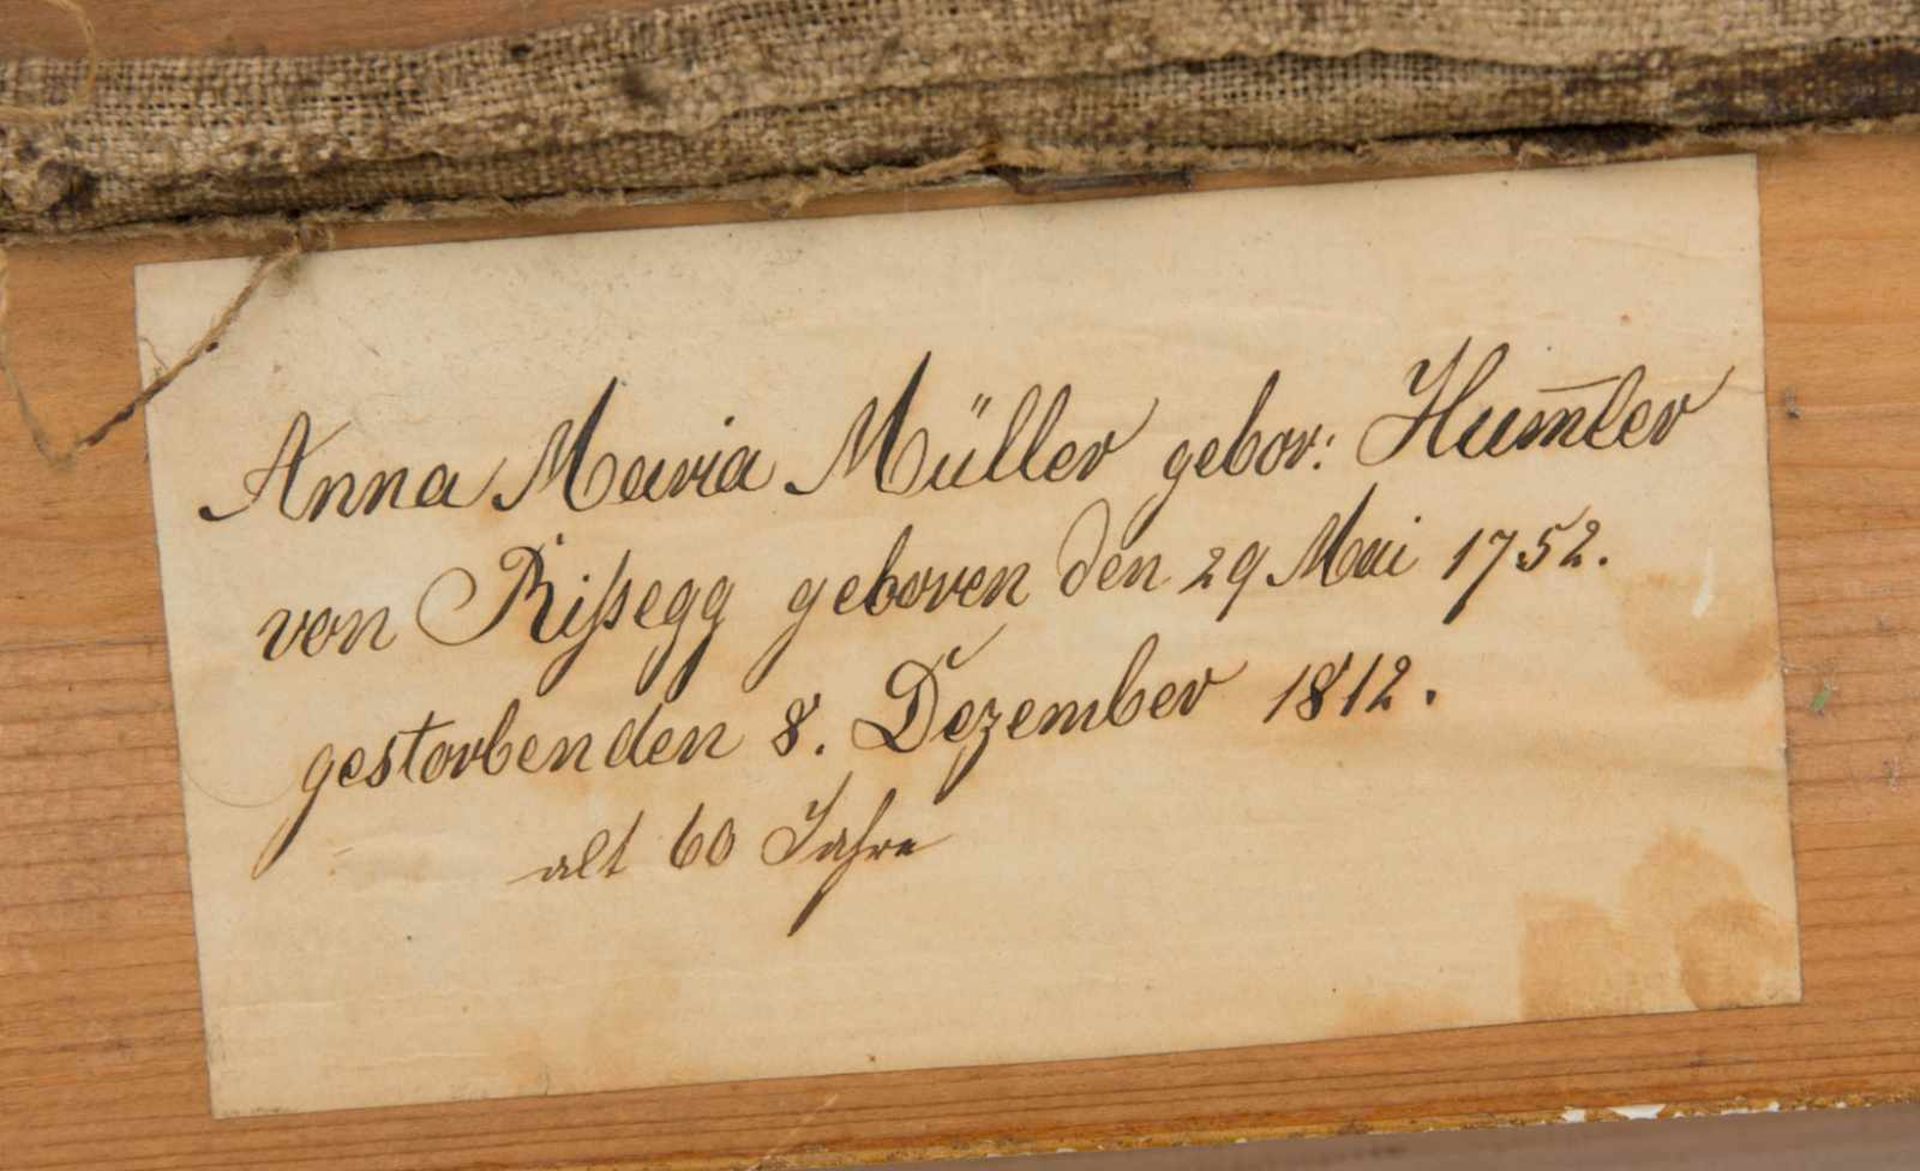 Anna Maria Müller gebor: Hum̅ler
von Rißegg geboren den 29 Mai 1752.
gestorben den 8. Dezember 1812.
alt 60 Jahre